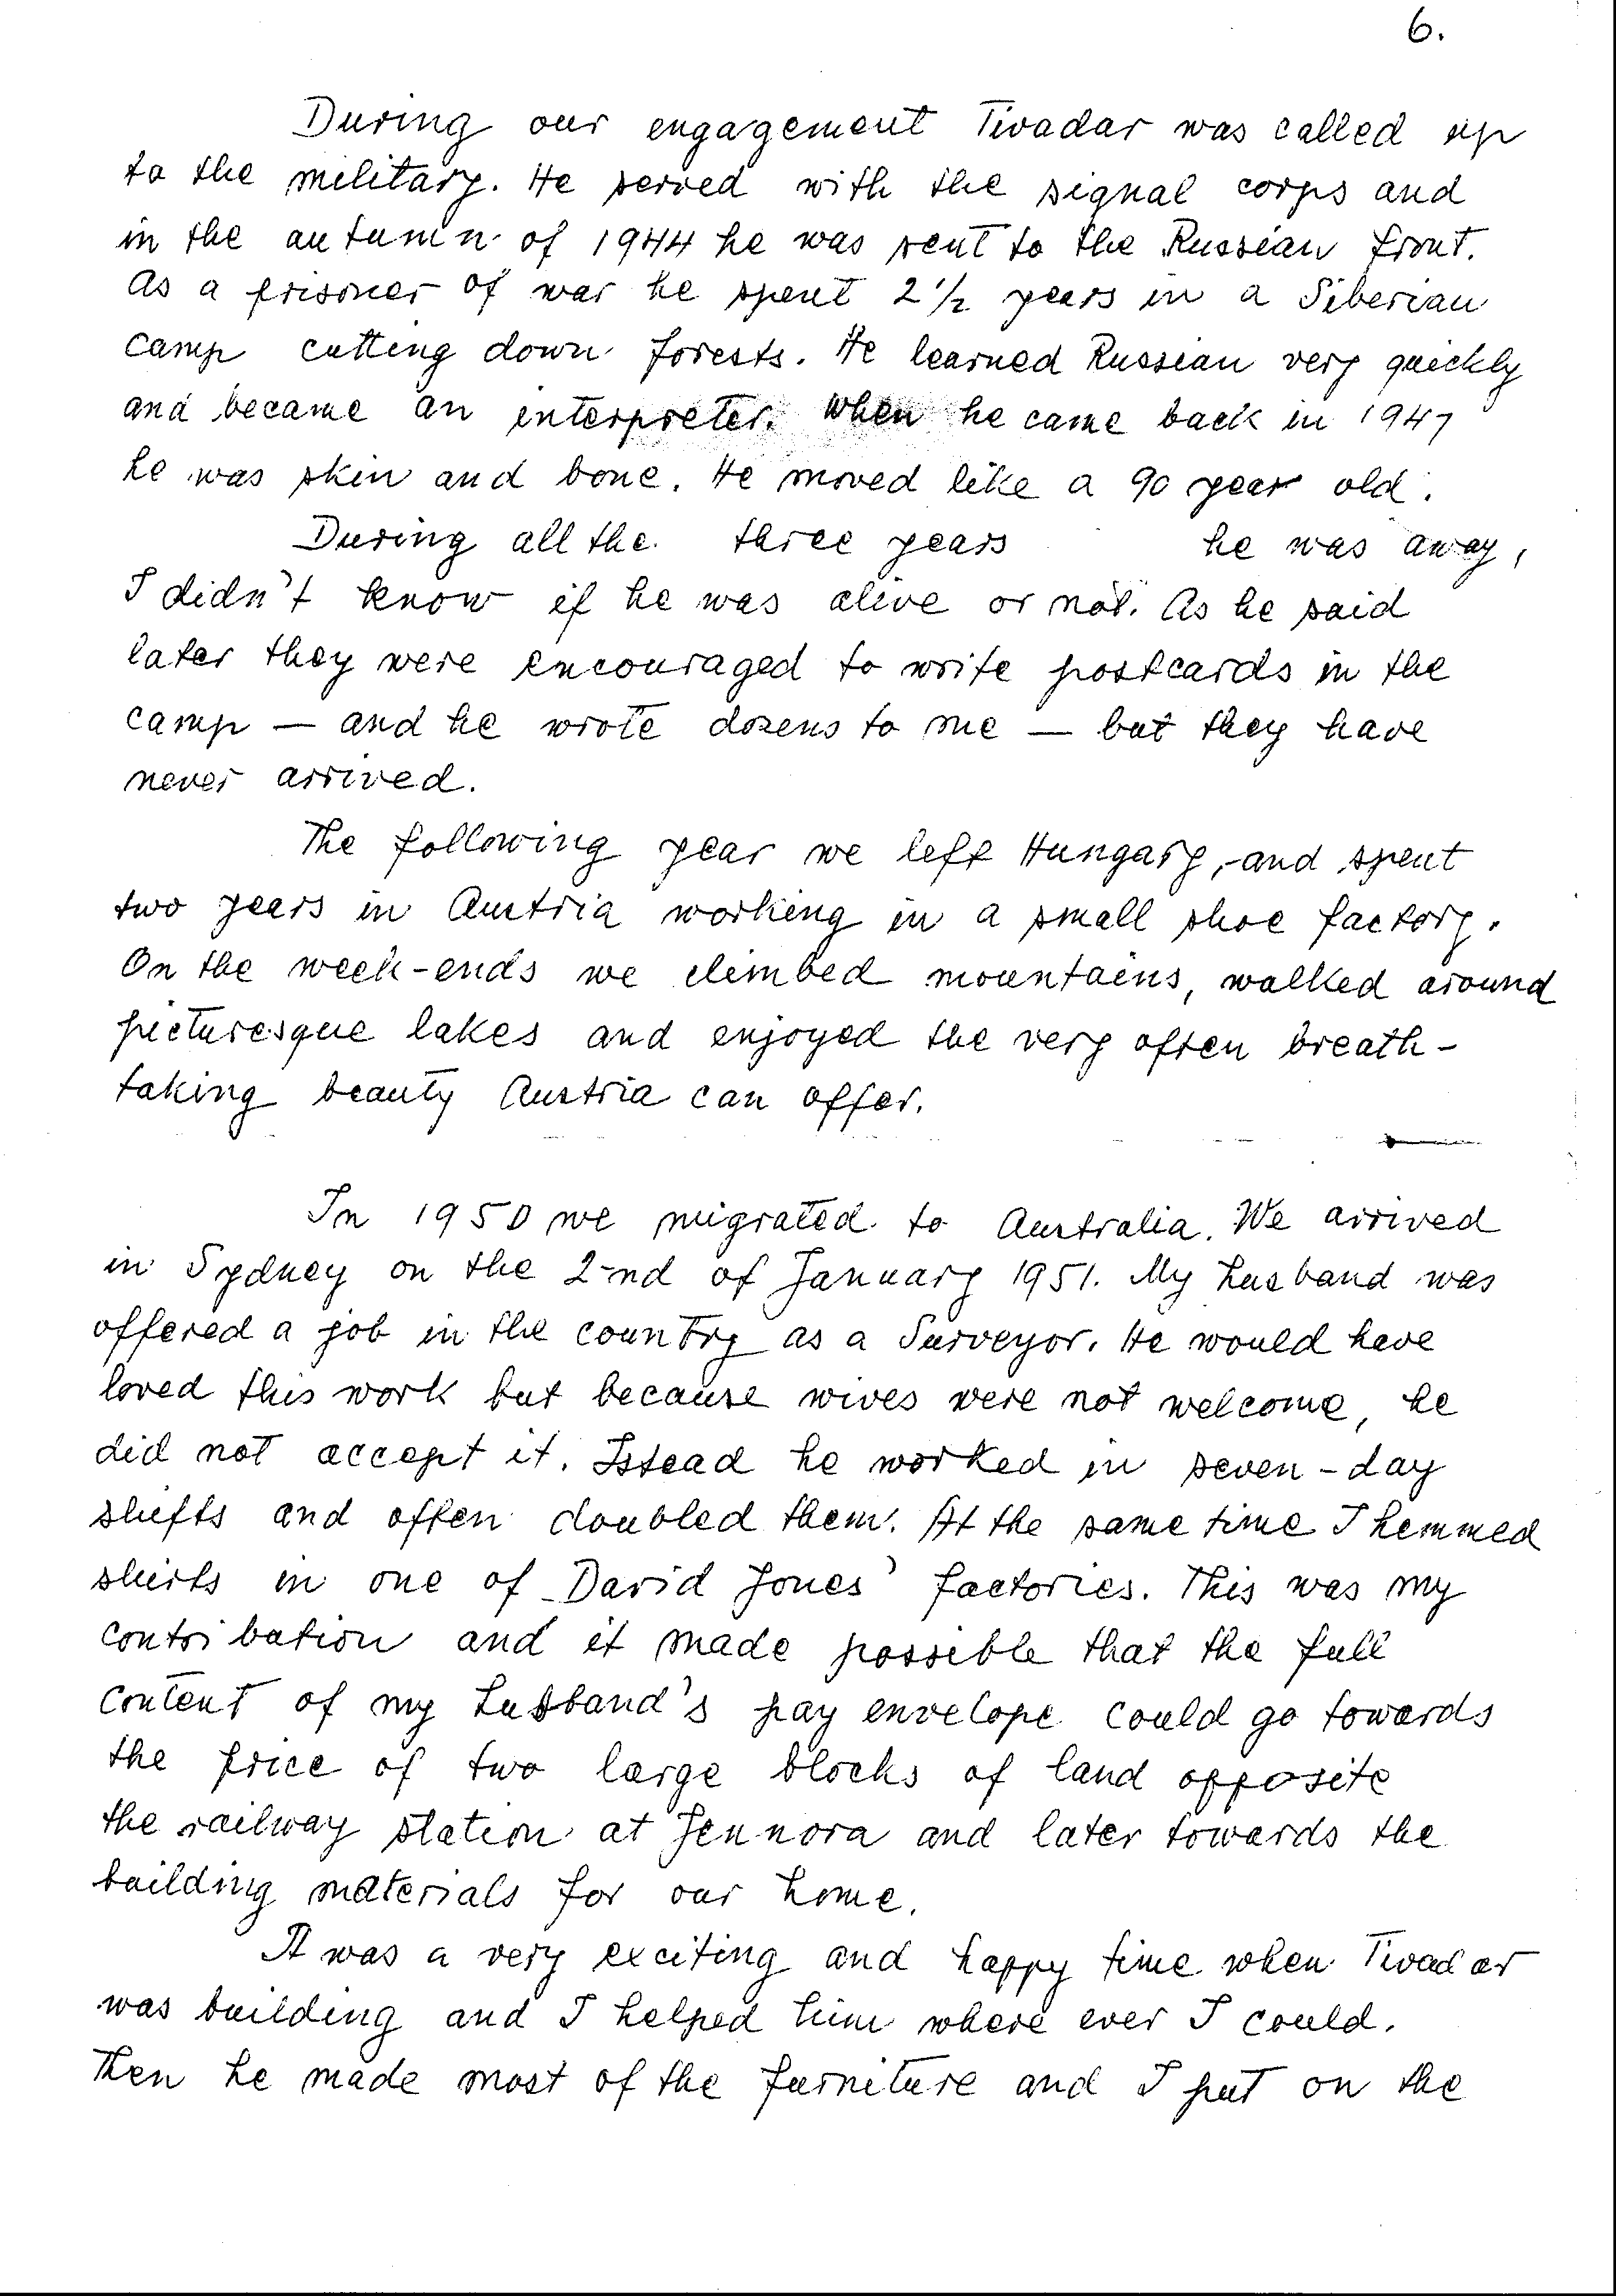 6.
During our engagement Tivadar was called up
to the military. He served with the signal corps and
in the autumn of 1944 he was sent to the Russian front.
As a prisoner of war he spent 2 1/2 years in a Siberian
camp cutting down forests. He learned Russian very quickly
and became an interpreter. When he came back in 1947
he was skin and bone. He moved like a 90 year old.
During all the three years he was away,
I didn't know if he was alive or not. As he said
later they were encouraged to write postcards in the
camp — and he wrote dozens to me — but they have
never arrived.
The following year we left Hungary, and spent
two years in Austria working in a small shoe factory.
On the week-ends we climbed mountains, walked around
picturesque lakes and enjoyed the very often breath-
taking beauty Austria can offer.
In 1950 we migrated to Australia. We arrived
in Sydney on the 2-nd of January 1951. My husband was
offered a job in the country as a Surveyor. He would have
loved this work but because wives were not welcome, he
did not accept it. Istead he worked in seven-day
shifts and often doubled them. At the same time I hemmed
shirts in one of David Jones' factories. This was my
contribution and it made possible that the full
content of my husband's pay envelope could go towards
the price of two large blocks of land opposite
the railway station at Jennora and later towards the
building materials for our home.
It was a very exciting and happy time when Tivadar
was building and I helped him where ever I could.
Then he made most of the furniture and I put on the